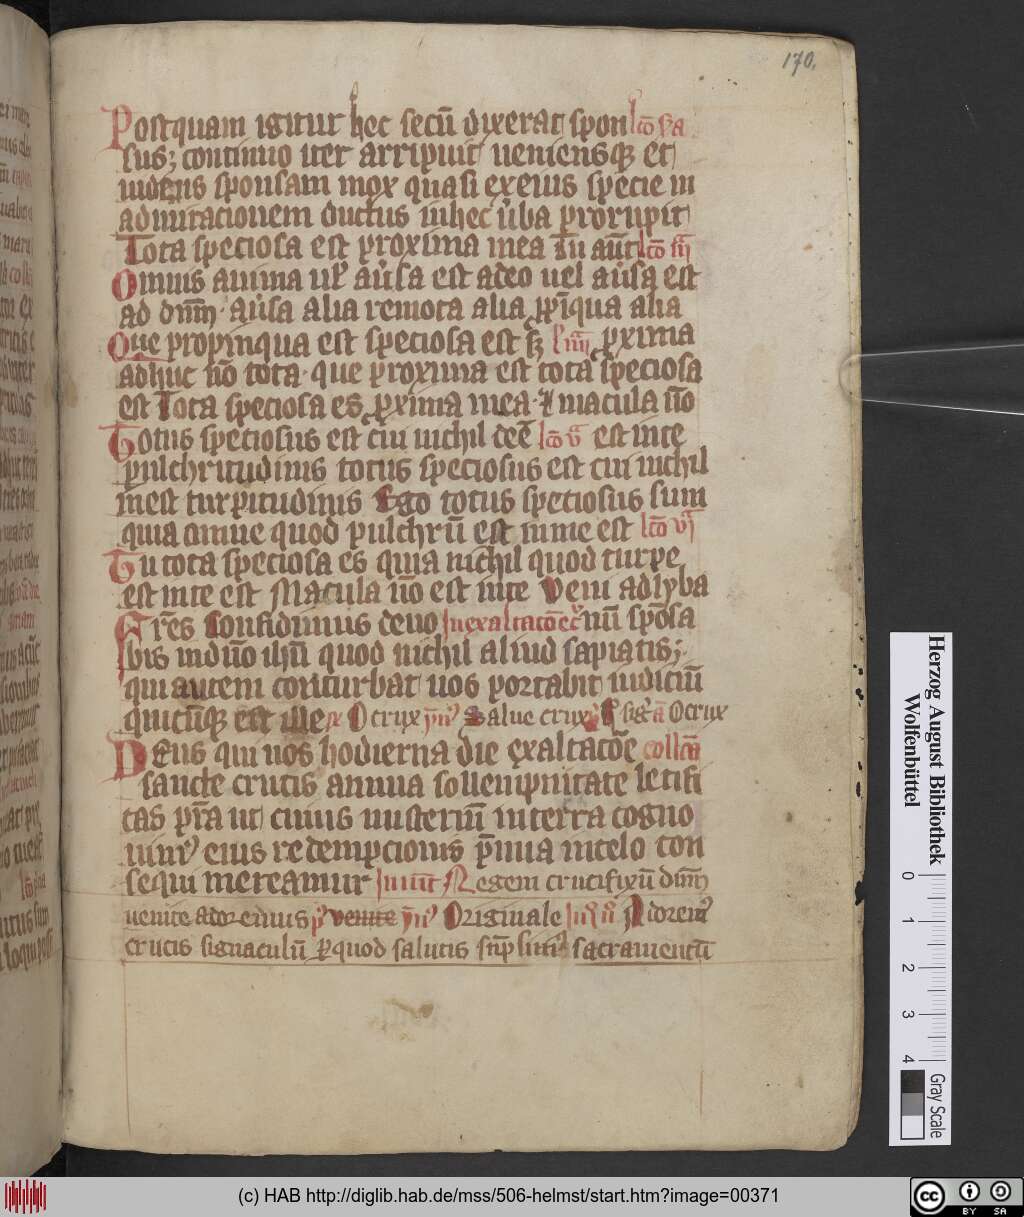 170.
Postquam igitur hec secū dixerat spon lc̄o p̄a
sus; continuo iter arripuit ueniensqȝ et
uidens sponsam mox quasi ex eius specie in
admiracionem ductus in hec ūba prorupit
Tota speciosa est proxima mea Tu aūt lc̄o iii
Omnis anima ul' aūsa est a deo uel aūsa est
ad dn̄m aūsa alia remota alia ꝓpīqua alia
Que propinqua est speciosa est sꝫ l' iiii ꝓxima
adhuc nō tota que proxima est tota speciosa
est Tota speciosa es ꝓxima mea ⁊ macula nō
Totus speciosus est cui nichil deē lc̄o v est in te
pulchritudinis totus speciosus est cui nichil
inest turpitudinis Ego totus speciosus sum
quia omne quod pulchrū est in me est lc̄o vi
Tu tota speciosa es quia nichil quod turpe
est in te est Macula nō est in te Veni ad lyba
Fr̄es Confidimus de uo In exaltatōe c̄ nū sp̄osa
bis in dn̄o ihū quod nichil aliud sapiatis;
qui autem conturbat uos portabit iudiciū
quicūqȝ est ille O crux ymꝰ Salue crux sig̅a O crux
Deus qui nos hodierna die exaltacōe collcā
sancte crucis annua sollempnitate letifi
cas pr̄a ut cuius misteriū in terra cogno
uimꝰ eius redempcionis p̄mia in celo con
sequi mereamur Inuit Regem crucifixū dn̄m
uenite adoremus pꝰ venite ymꝰ Originale In i n̄ Adoremꝰ
crucis signaculū ꝑ quod salutis sūpsimꝰ sacramentū
Herzog August Bibliothek
Wolfenbüttel
0
1
2
3
4
Gray Scale
(c) HAB http://diglib.hab.de/mss/506-helmst/start.htm?image=00371
cc
BY SA